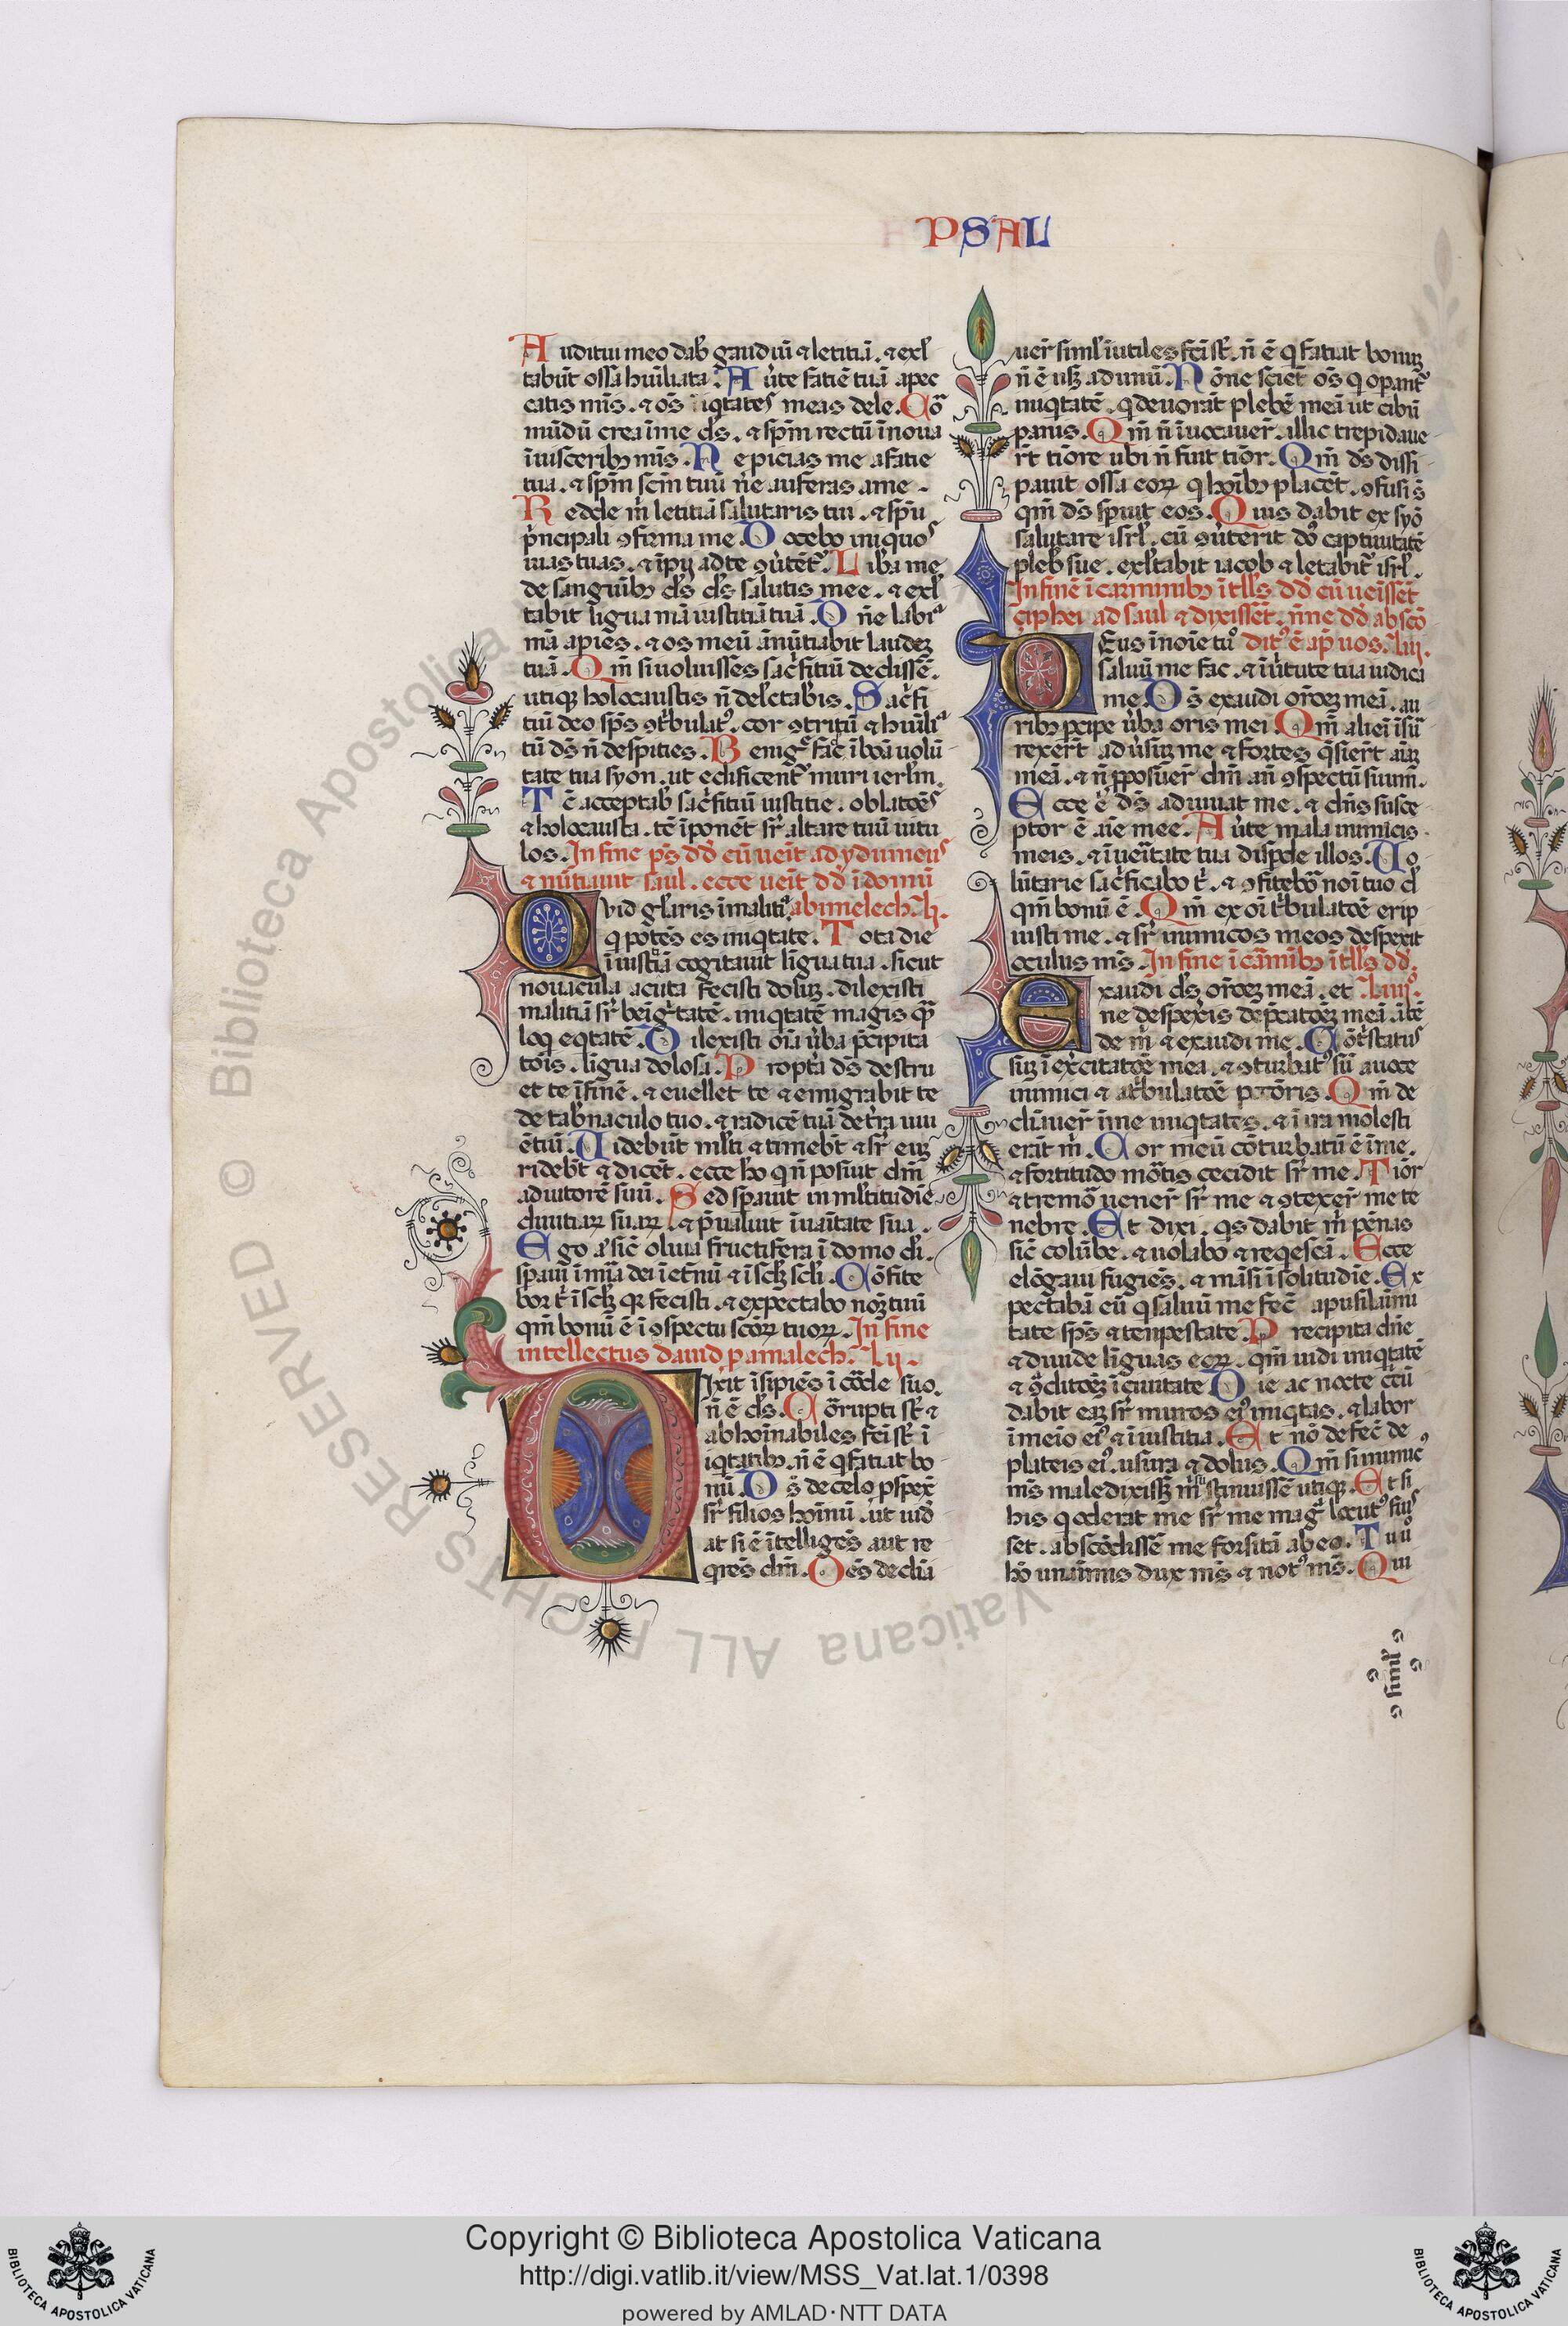 PSAL
Auditui meo dab̃ gaudiũ ⁊ letitiã . ⁊ exl̃
tabũt ossa hũiliata . Aủte fatiẽ tuã a pec
catis mẽis . ⁊ oẽs iq̃tates meas dele . Cõ
mũdũ crea ĩ me d̃s . ⁊ sp̃m rectũ ĩnoua
ĩ uisceribꝫ mẽis . Ne picias me a fatie
tua . ⁊ sp̃m sc̃m tuũ ne auferas a me .
Redde m̃ letitiã salutaris tui . ⁊ sp̃u
p̃ncipali ꝯfirma me . Docebo iniquos
uias tuas . ⁊ ĩpii ad te ꝯủtẽt᷑ . Lib̃a me
de sanguĩbꝫ d̃s d̃s salutis mee . ⁊ exl̃
tabit ligua mã iustitiã tuã . Dñe labia
mã apies . ⁊ os meũ ãnũtiabit laudeꝫ
tuã . Qm̃ si uoluisses sac̃fitiũ dedissẽ .
utiqꝫ holocaustis ñ delc̃tab̃is . Sac̃fi
tiũ deo sp̃s ꝯt̃bulat᷒ . cor ꝯtritũ ⁊ hũilia
tũ d̃s ñ despities . Benig᷑ fac ĩ bõa uolũ
tate tua syon . ut edificent᷑ muri ierl̃m .
Tc̃ acceptab̃ sac̃fitiũ iustitie . oblatõẽs
⁊ holocausta . tc̃ ĩponẽt sr̃ altare tuũ uitu
los . In fine ps̃ dd̃ cũ uẽit ad ydumeus
⁊ nũtiauit saul . ecce uẽit dd̃ ĩ domũ
Quid gl̃aris ĩ malitia abimelech . li .
q potẽs es iniq̃tate . Tota die
ĩiustitiã cogitauit lĩgua tua . sicut
nouacula acuta fecisti doluꝫ . dilexisti
malitiã sr̃ beĩg̃tatẽ . iniq̃tatẽ magis qᷓ
loq̃ eq̃tatẽ . Dilexisti oĩa ủba p̃cipita
tõis . lĩgua dolosa . Propt̃a d̃s destru
et te ĩ finẽ . ⁊ euellet te ⁊ emigrabit te
de tab̃naculo tuo . ⁊ radicẽ tuã de t̃ra uiu
ẽtiũ . Uidebũt iusti ⁊ timebt̃ ⁊ sr̃ euꝫ
ridebt̃ ⁊ dicẽt . ecce hõ q ñ posiuit dm̃
adiutorẽ suũ . Sed spauit in ml̃titudĩe
diuitiaꝝ suaꝝ . ⁊ p̃ualuit ĩ uaĩtate sua .
Ego ã sic̃ oliua fructifera ĩ domo di .
spaui ĩ mĩa dei ĩ et̃nũ ⁊ ĩ sc̃lꝫ sc̃li . Cõfite
bor t̃ ĩ sc̃lꝫ qr̃ fecisti . ⁊ expectabo noꝫ tuũ
qm̃ bonũ ẽ ĩ ꝯspectu sc̃oꝝ tuoꝝ . In fine
intellectus dauid p amalech . lii .
Dixit ĩsipiẽs ĩ corde suo
ñ ẽ d̃s . Corrupti st̃ ⁊
abhoĩnabiles fc̃i st̃ ĩ
iq̃tatibꝫ . ñ ẽ q fatiat bo
nũ . D̃s de celo pspex̃
sr̃ filios hoĩnũ . ut uid̃
at si ẽ ĩtelligẽs aut re
q̃rẽs dm̃ . Oẽs decliã
uer̃ siml̃ ĩutiles fc̃i st̃ . ñ ẽ q fatiat bonuꝫ
ñ ẽ usqꝫ ad unũ . Nõne sciẽt oẽs q opant᷑
iniq̃tatẽ . q deuorãt plebẽ meã ut cibũ
panis . Qm̃ ñ ĩuocauer̃ . illic trepidaue
rt̃ tiõre ubi ñ fuit tior . Qm̃ d̃s dissi
pauit ossa eoꝝ q hoĩbꝫ placẽt . ꝯfusi s̃
qm̃ d̃s sp̃uit eos . Quis dabit ex syõ
salutare isrl̃ . cũ ꝯủterit d̃s captiuitatẽ
pleb̃ sue . exl̃tabit iacob ⁊ letabit᷑ isrl̃ .
In finẽ ĩ carminibꝫ ĩtl̃ls dd̃ cũ ueĩssẽt
ciphei ad saul ⁊ dixissẽt . ñne dd̃ abscõ
Deus ĩ noĩe tuo dit᷒ ẽ ap̃ uos . liii .
saluũ me fac . ⁊ ĩ ủtute tua iudica
me . D̃s exaudi or̃oeꝫ meã . au
ribꝫ pcipe ủba oris mei . Qm̃ alieĩ ĩsur̃
rexer̃t ad ủsuꝫ me ⁊ fortes q̃sier̃t aĩaꝫ
meã . ⁊ ñ pposuer̃ dm̃ añ ꝯspectũ suum .
Ecce ẽ d̃s adiuuat me . ⁊ dñs susce
ptor ẽ aĩe mee . Aủte mala inimicis
meis . ⁊ ĩ ueĩtate tua dispde illos . Uo
lũtarie sac̃ficabo t̃ . ⁊ ꝯfitebor̃ noĩ tuo d̃
qm̃ bonũ ẽ . Qm̃ ex oĩ t̃bulatõe erip
uisti me . ⁊ sr̃ inimicos meos despexit
oculus mẽs . In fine ĩ carmĩbꝫ ĩtl̃ls dd̃ .
Exaudi d̃s or̃oeꝫ meã . et liiii .
ne despexis depcatõeꝫ meã ĩtẽ
de m̃ ⁊ exaudi me . Cõt̃status
suꝫ ĩ exc̃itatõe mea . ⁊ ꝯturbat᷒ sũ a uoce
inimici ⁊ a t̃bulatõe pctõris . Qm̃ de
cliuer̃ ĩ me iniq̃tates . ⁊ ĩ ira molesti
erãt m̃ . Cor meũ cõturbatũ ẽ ĩ me .
⁊ fortitudo mõtis cecidit sr̃ me . Tior
⁊ tremor uener̃ sr̃ me ⁊ ꝯtexer̃ me te
nebre . Et dixi . qs dabit m̃ pẽnas
sic̃ colũbe . ⁊ uolabo ⁊ reqescã . Ecce
elõgaui fugiẽs . ⁊ mãsi ĩ solitudĩe . Ex
pectabã eũ q saluũ me fec̃ a pusilãimi
tate sp̃s ⁊ tempestate . Precipita dñe
⁊ diuide lĩguas eoꝝ . qm̃ uidi iniq̃tatẽ
⁊ ꝯ̃dictoeꝫ ĩ ciuitate . Die ac nocte circũ
dabit eaꝫ sr̃ muros ei᷒ iniq̃tas . ⁊ labor
ĩ meio ei᷒ ⁊ ĩiustitia . Et nõ defec̃ de
plateis ei᷒ . usura ⁊ dolus . Qm̃ si inimic᷒
m̃s maledixisꝫ m̃ sustinuissẽ utiqꝫ . Et si
his q oderat me sr̃ me mag᷑ locut᷒ fuis
set . abscõdissẽ me forsitã ab eo . Tu ủo
hõ unaĩmis dux m̃s ⁊ not᷒ m̃s . Qui
simĩ
Copyright © Biblioteca Apostolica Vaticana
http://digi.vatlib.it/view/MSS_Vat.lat.1/0398
powered by AMLAD·NTT DATA
BIBLIOTECA APOSTOLICA VATICANA
BIBLIOTECA APOSTOLICA VATICANA
© Biblioteca Apostolica Vaticana ALL RIGHTS RESERVED